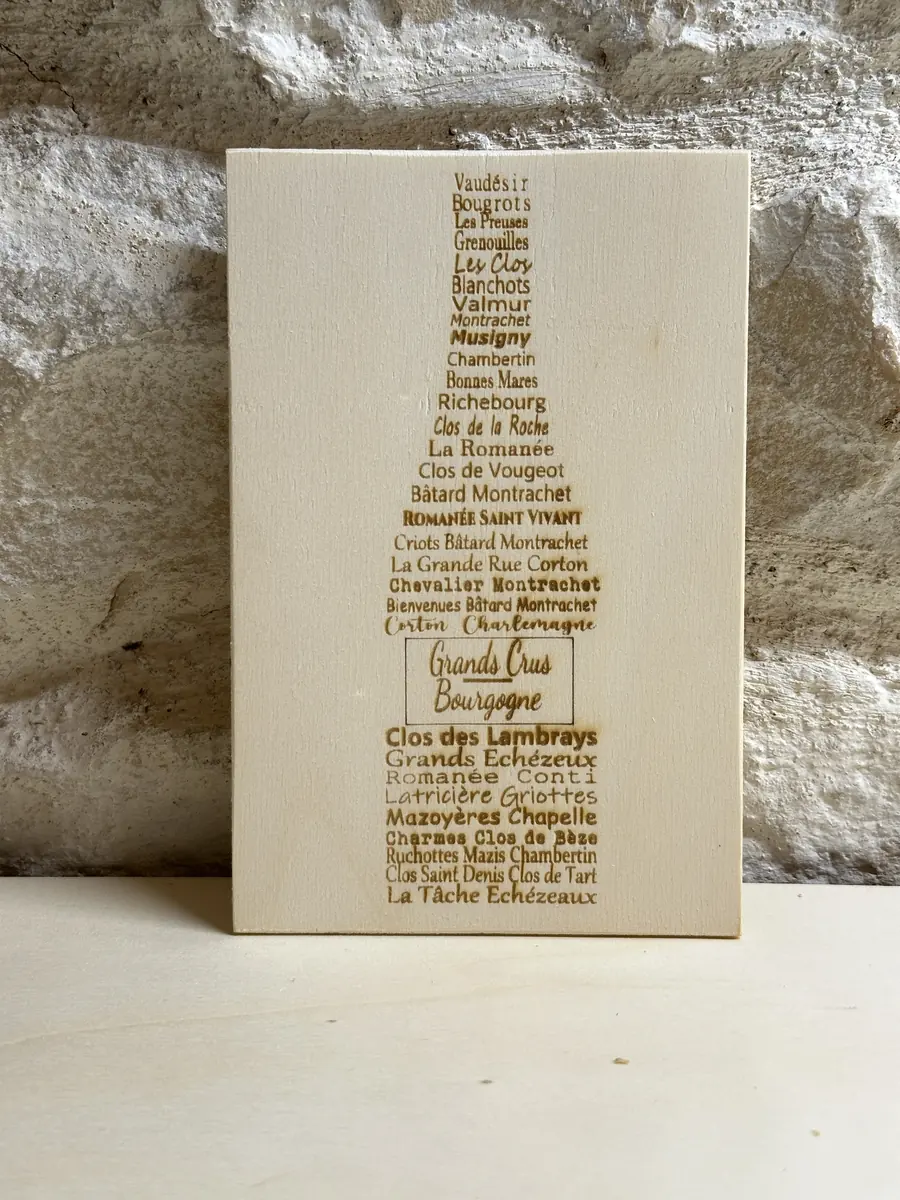 Vaudésir
Bougrots
Les Preuses
Grenouilles
Les Clos
Blanchots
Valmur
Montrachet
Musigny
Chambertin
Bonnes Mares
Richebourg
Clos de la Roche
La Romanée
Clos de Vougeot
Bâtard Montrachet
ROMANÉE SAINT VIVANT
Criots Bâtard Montrachet
La Grande Rue Corton
Chevalier Montrachet
Bienvenues Bâtard Montrachet
Corton Charlemagne
Grands Crus
Bourgogne
Clos des Lambrays
Grands Echézeux
Romanée Conti
Latricière Griottes
Mazoyères Chapelle
Charmes Clos de Bèze
Ruchottes Mazis Chambertin
Clos Saint Denis Clos de Tart
La Tâche Echézeaux